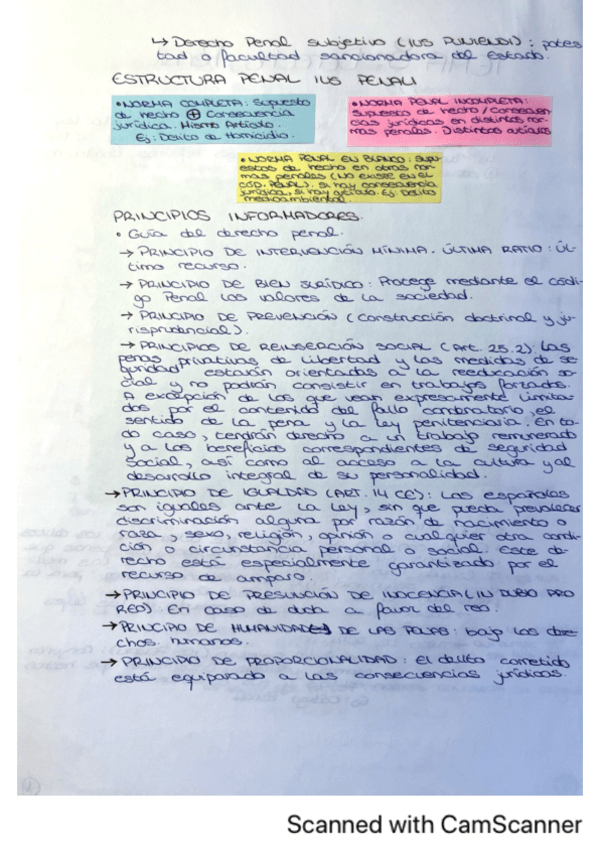 ↳ Derecho Penal subjetivo (IUS PUNIENDI): potes
tad o facultad sancionadora del Estado.
ESTRUCTURA PENAL IUS PENALI
• NORMA COMPLETA: Supuesto
de hecho ⊕ Consecuencia
jurídica. Mismo Artículo.
Ej: Delito de Homicidio.
• NORMA PENAL INCOMPLETA:
supuesto de hecho / consecuen
cias jurídicas en distintas nor
mas penales. Distintos artículos
• NORMA PENAL EN BLANCO: Supu
estos de hecho en otras nor
mas penales (NO EXISTE EN EL
CÓD. PENAL), si hay consecuencia
jurídica, si hay artículo. Ej. Delito
medioambiental
PRINCIPIOS INFORMADORES.
• Guía del derecho penal.
→ PRINCIPIO DE INTERVENCIÓN MÍNIMA. ÚLTIMA RATIO: Úl-
timo recurso.
→ PRINCIPIO DE BIEN JURÍDICO: Protege mediante el códi-
go Penal los valores de la sociedad.
→ PRINCIPIO DE PREVENCIÓN (construcción doctrinal y ju-
risprudencial).
→ PRINCIPIOS DE REINSERCIÓN SOCIAL (Art. 25.2). Las
penas privativas de libertad y las medidas de se
guridad estarán orientadas a la reeducación so
cial y no podrán consistir en trabajos forzados.
A excepción de los que vean expresamente limita
dos por el contenido del fallo condenatorio, el
sentido de la pena y la ley penitenciaria. En to-
do caso, tendrán derecho a un trabajo remunerado
y a los beneficios correspondientes de seguridad
social, así como al acceso a la cultura y al
desarrollo integral de su personalidad.
→ PRINCIPIO DE IGUALDAD (ART. 14 CE): Los españoles
son iguales ante la Ley, sin que pueda prevalecer
discriminación alguna por razón de nacimiento o
raza, sexo, religión, opinión o cualquier otra condi-
ción o circunstancia personal o social. Este de-
recho está especialmente garantizado por el
recurso de amparo.
→ PRINCIPIO DE PRESUNCIÓN DE INOCENCIA (IN DUBIO PRO
REO) En caso de duda a favor del reo.
→ PRINCIPIO DE HUMANIDAD DE LAS PENAS: bajo los dere
chos humanos.
→ PRINCIPIO DE PROPORCIONALIDAD: El delito cometido
está equiparado a las consecuencias jurídicas.
Scanned with CamScanner